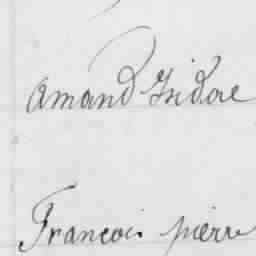 Amand Isidore
Francois pierre